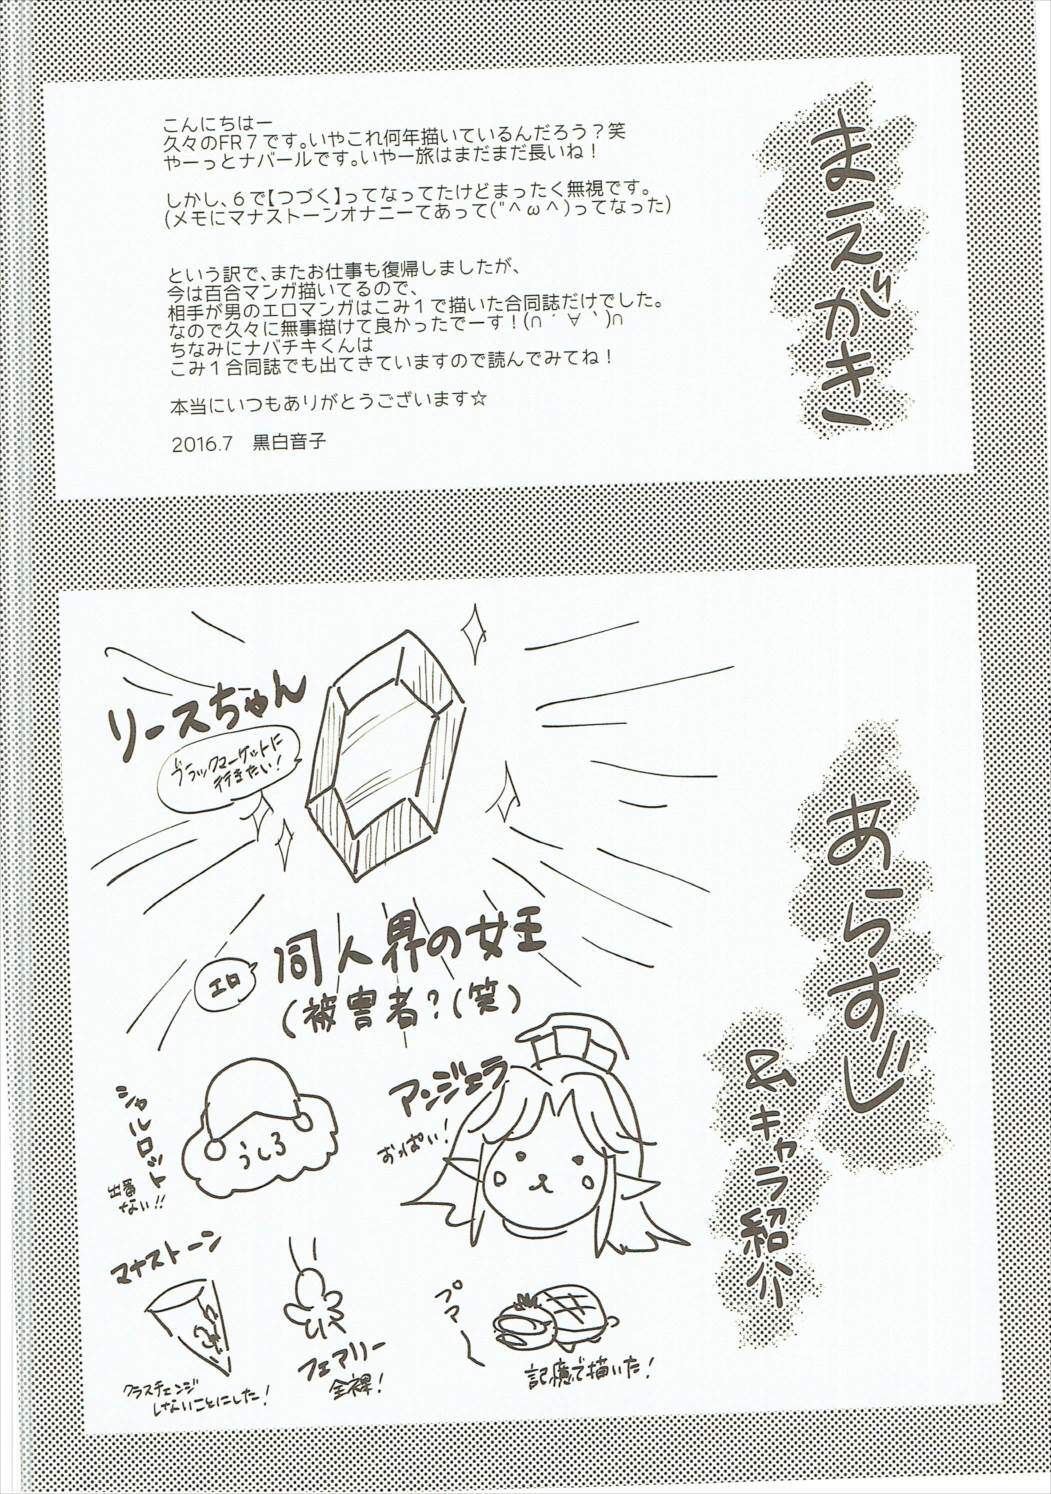 まえがき
こんにちはー
久々のFR7です。いやこれ何年描いているんだろう？笑
やーっとナバールです。いやー旅はまだまだ長いね！
しかし、6で【つづく】ってなってたけどまったく無視です。
(メモにマナストーンオナニーてあって("^ω^)ってなった)
という訳で、またお仕事も復帰しましたが、
今は百合マンガ描いてるので、
相手が男のエロマンガはこみ1で描いた合同誌だけでした。
なので久々に無事描けて良かったでーす！(∩´∀｀)∩
ちなみにナバチキくんは
こみ1合同誌でも出てきていますので読んでみてね！
本当にいつもありがとうございます☆
2016.7　黒白音子
あらすじ
&キャラ紹介
リースちゃん
ブラックマーケットに
行きたい！
エロ
同人界の女王
(被害者?(笑)
アンジェラ
おっぱい！
シャルロット
出番
ない!!
うしろ
マナストーン
クラスチェンジ
しないことにした！
フェアリー
全裸！
ブマーン
記憶で描いた！